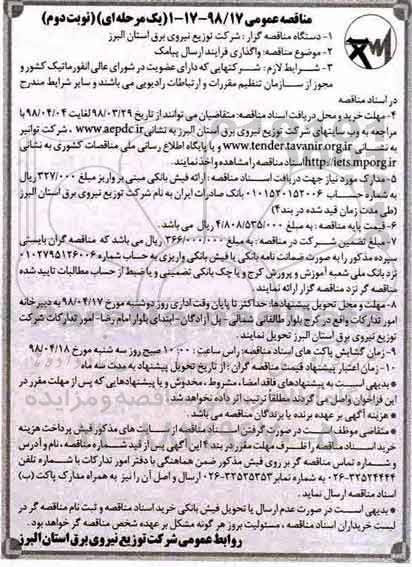 مناقصه عمومی ۹۸/۱۷-۱۷-۱ (یک مرحله‌ای) (نوبت دوم)
۱- دستگاه مناقصه گزار : شرکت توزیع نیروی برق استان البرز
۲- موضوع مناقصه: واگذاری فرایند ارسال پیامک
۳- شرایط لازم : شرکتهایی که دارای عضویت در شورای عالی انفورماتیک کشور و
مجوز از سازمان تنظیم مقررات و ارتباطات رادیویی می باشند و سایر شرایط مندرج
در اسناد مناقصه
۴- مهلت خرید و محل دریافت اسناد مناقصه: متقاضیان می توانند از تاریخ ۹۸/۰۳/۲۹ لغایت ۹۸/۰۴/۰۴ با
مراجعه به وب سایتهای شرکت توزیع نیروی برق استان البرز به نشانی www.aepdc.ir ، شرکت توانیر
به نشانی www.tender.tavanir.org.ir و یا پایگاه اطلاع رسانی ملی مناقصات کشوری به نشانی
http://iets.mporg.ir اسناد مناقصه را مشاهده و اخذ نمایند.
۵- مدارک مورد نیاز جهت دریافت اسناد مناقصه : ارائه فیش بانکی مبنی بر واریز مبلغ ۳۲۷/۰۰۰ ریال
به شماره حساب ۰۱۰۱۵۲۰۱۵۲۰۰۶ بانک صادرات ایران به نام شرکت توزیع نیروی برق استان البرز
(طی مدت زمان قید شده در بند۴)
۶- قیمت پایه مناقصه : به مبلغ ۴/۸۰۸/۵۳۵/۰۰۰ ریال می باشد.
۷- مبلغ تضمین شرکت در مناقصه : به مبلغ ۳۶۶/۰۰۰/۰۰۰ ریال می باشد که مناقصه گران بایستی
سپرده مذکور را به صورت ضمانت نامه بانکی یا فیش بانکی واریزی به حساب شماره ۰۱۰۲۷۹۵۱۲۶۰۰۶
نزد بانک ملی شعبه آموزش و پرورش کرج و یا چک بانکی تضمینی و یا ضبط از حساب مطالبات تایید شده
مناقصه گر نزد مناقصه گزار ارائه نمایند.
۸- مهلت و محل تحویل پیشنهادها: حداکثر تا پایان وقت اداری روز دوشنبه مورخ ۹۸/۰۴/۱۷ به دبیرخانه
امور تدارکات واقع در کرج بلوار طالقانی شمالی - پل آزادگان - ابتدای بلوار امام رضا- امور تدارکات شرکت
توزیع نیروی برق استان البرز تحویل نمایند.
۹- زمان گشایش پاکت های اسناد مناقصه: راس ساعت ۱۰:۰۰ صبح روز سه شنبه مورخ ۹۸/۰۴/۱۸
۱۰- زمان اعتبار پیشنهاد قیمت مناقصه گران : از تاریخ تحویل پیشنهاد به مدت سه ماه
* بدیهی است به پیشنهادهای فاقد امضا ، مشروط ، مخدوش و یا پیشنهادهایی که پس از مهلت مقرر در
این فراخوان واصل گردد مطلقا ترتیب اثر داده نخواهد شد.
* هزینه آگهی بر عهده برنده یا برندگان مناقصه می باشد.
* متقاضی موظف است در صورت گرفتن اسناد مناقصه از سایت های مذکور فیش پرداخت هزینه
خرید اسناد مناقصه را ظرف مهلت مقرر در بند ۴ این آگهی پس از قید شماره مناقصه، نام و آدرس
و شماره تماس مناقصه گر بر روی فیش مذکور ضمن هماهنگی با دفتر امور تدارکات با شماره تلفن
به شماره نمابر ۳۲۵۳۵۳۵۳-۰۲۶ ارسال و اصل آن را نیز به همراه مدارک پاکت (ب)
اسناد مناقصه ارسال نماید.
* بدیهی است در صورت عدم ارسال یا تحویل فیش بانکی خرید اسناد مناقصه و ثبت نام مناقصه گر در
لیست خریداران اسناد مناقصه ، مسئولیت بروز هر گونه مشکل بر عهده شخص مناقصه گر خواهد بود.
روابط عمومی شرکت توزیع نیروی برق استان البرز